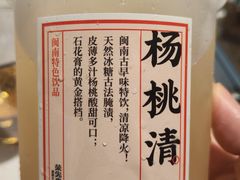 杨桃清
闽南古早味特饮，清凉降火！
天然冰糖古法腌渍，
皮薄多汁杨桃酸甜可口；
石花膏的黄金搭档。
闽南特色饮品